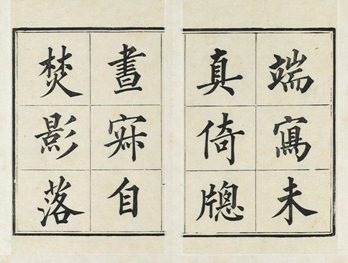 端寫未
真倚牕
晝寐自
焚影落